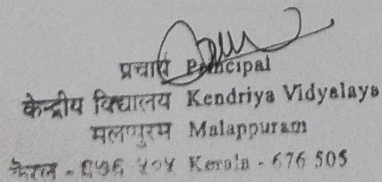 प्राचार्य Principal
केन्द्रीय विद्यालय Kendriya Vidyalaya
मलप्पुरम Malappuram
केरल - ६७६ ५०५ Kerala - 676 505